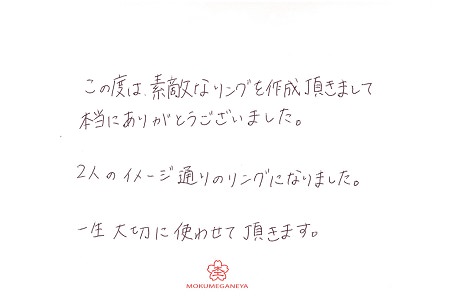 この度は、素敵なリングを作成頂きまして
本当にありがとうございました。
2人のイメージ通りのリングになりました。
一生大切に使わせて頂きます。
MOKUMEGANEYA